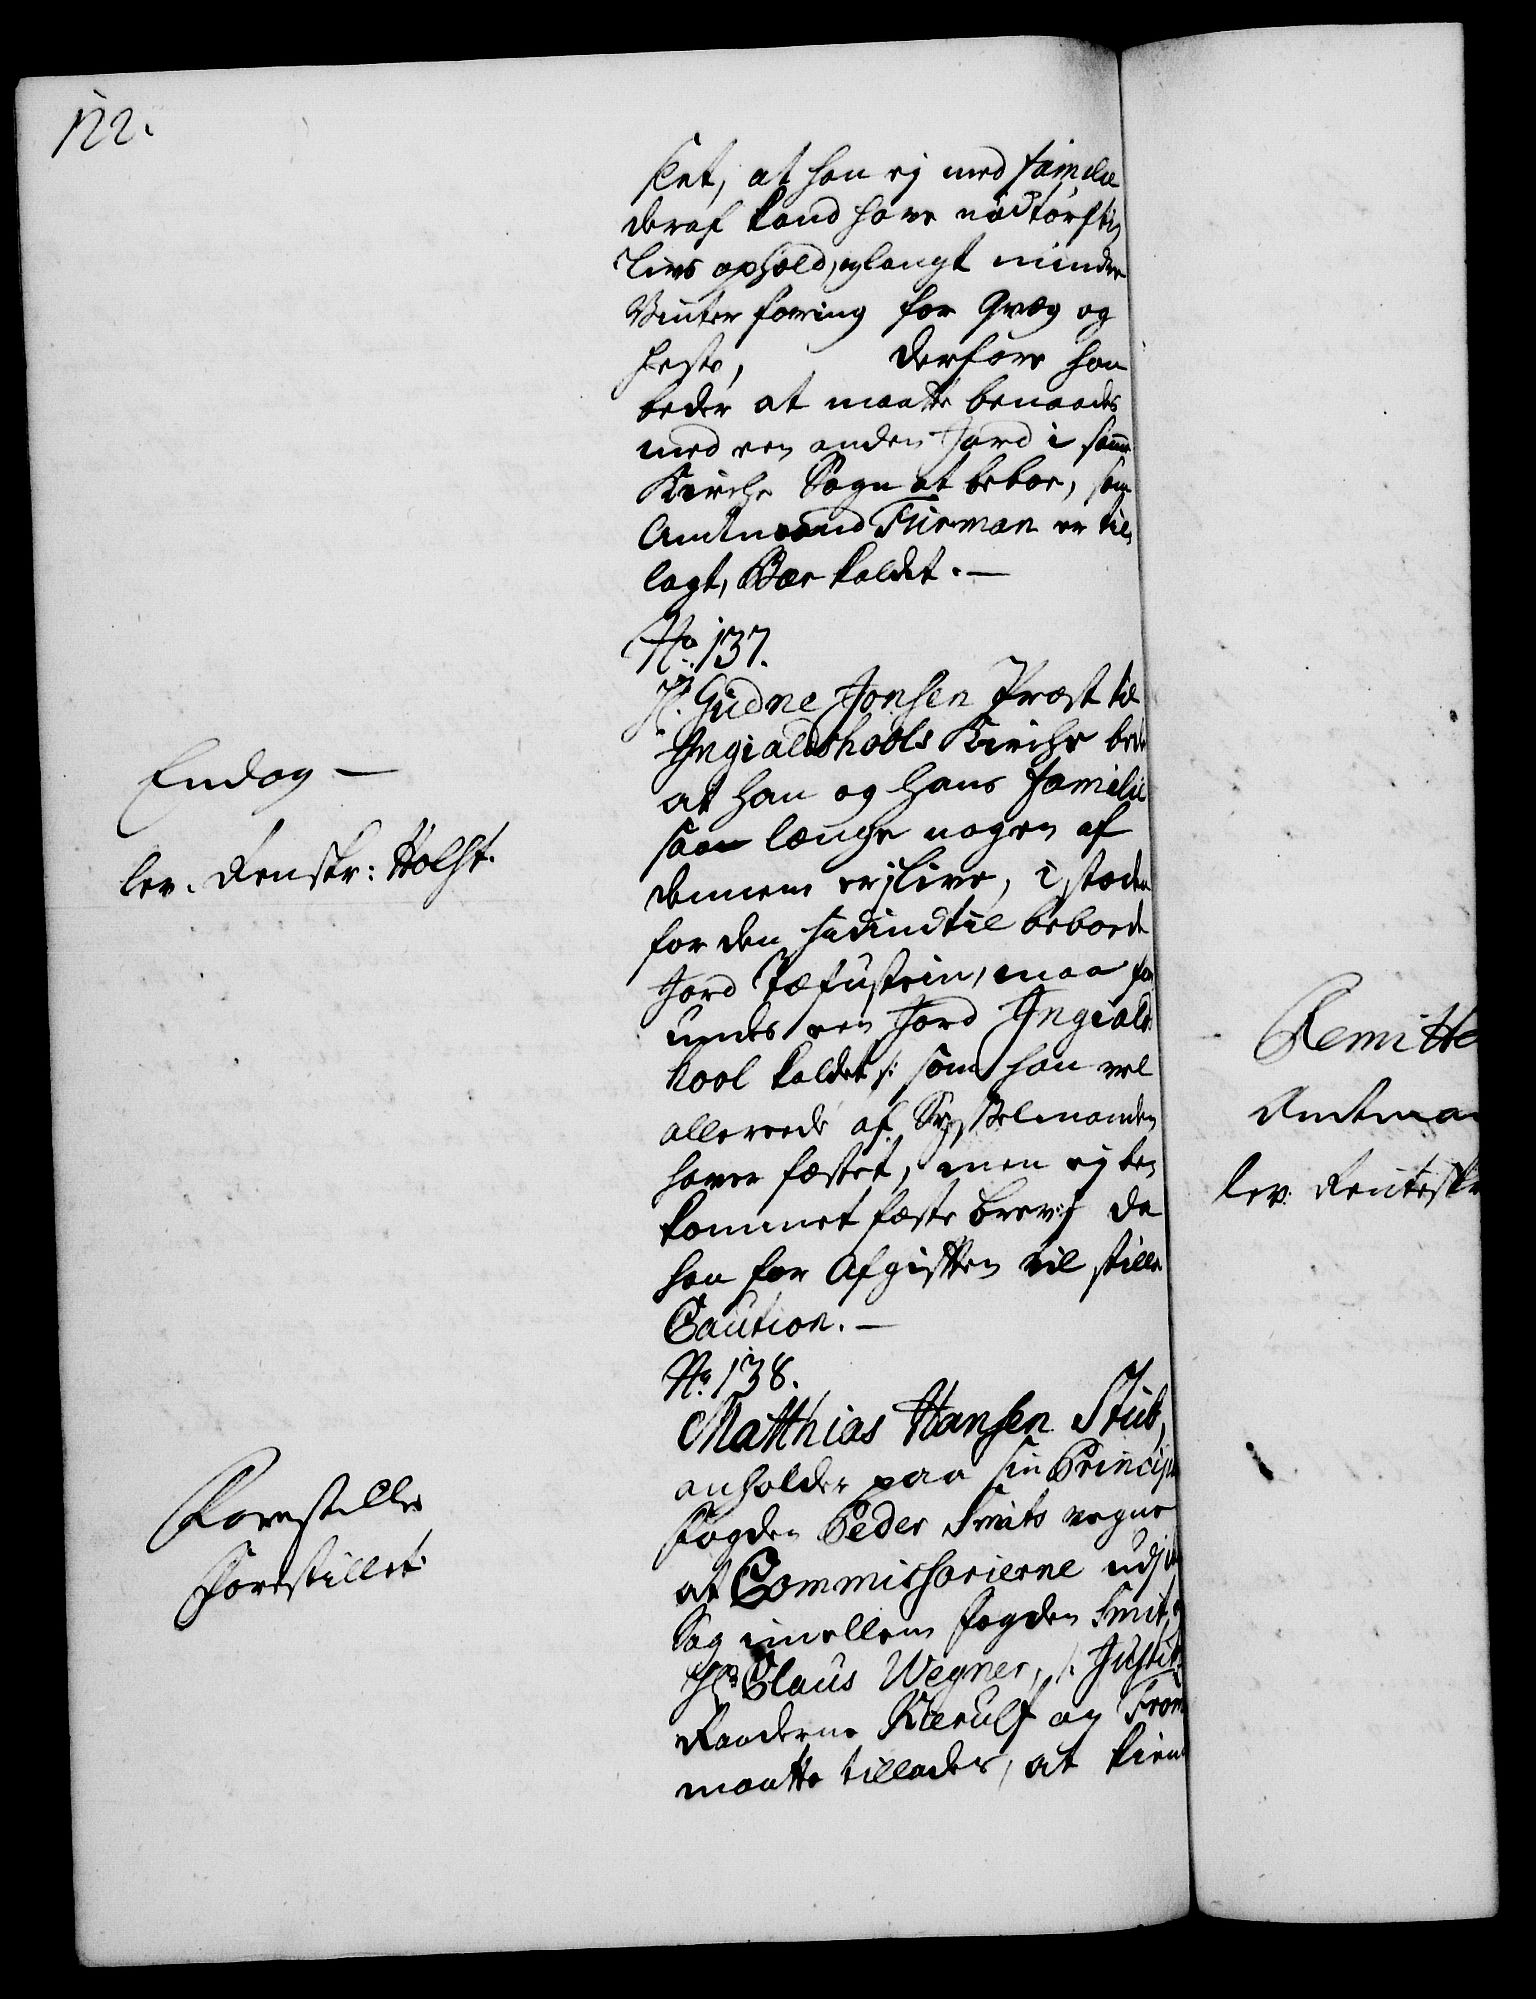 122.
slet, at han ej med familie
deraf kand have nødtørftig
livs ophold, og langt mindre
Vinter foring for Qvæg og
heste, derfore han
beder at maatte benaades
med een anden Jord i samme
Kirche Sogn at beboe, som
Amtmand Fürman er til
lagt, Bær kaldet. —
No. 137.
Hr. Gudne Jonsen Præst til
Ingialdshools Kirche beder
at han og hans familie
saa længe nogen af
dennem er i live, i stæden
for den hidindtil beboede
Jord Pæfustein, maa for
undes een Jord Ingialds
hool kaldet /: som han vel
allereede af Sysselmanden
haver fæstet, men ej be
kommet fæste brev :/ da
han for Afgiften vil stille
Caution. —
No. 138.
Matthias Hansen Stub,
anholder paa sin Principal
fogden Peder Smits vegne
at Commissarierne udj
Sag imellem fogden Smit og
Hr. Claus Wegner, /: Justitz
Raaderne Kierulf og From
maatte tillades, at kien
Endog —
lev. Renskr: Holst.
Forestilles
Forestillet.
Remitte
Amtma
lev. Renteskr